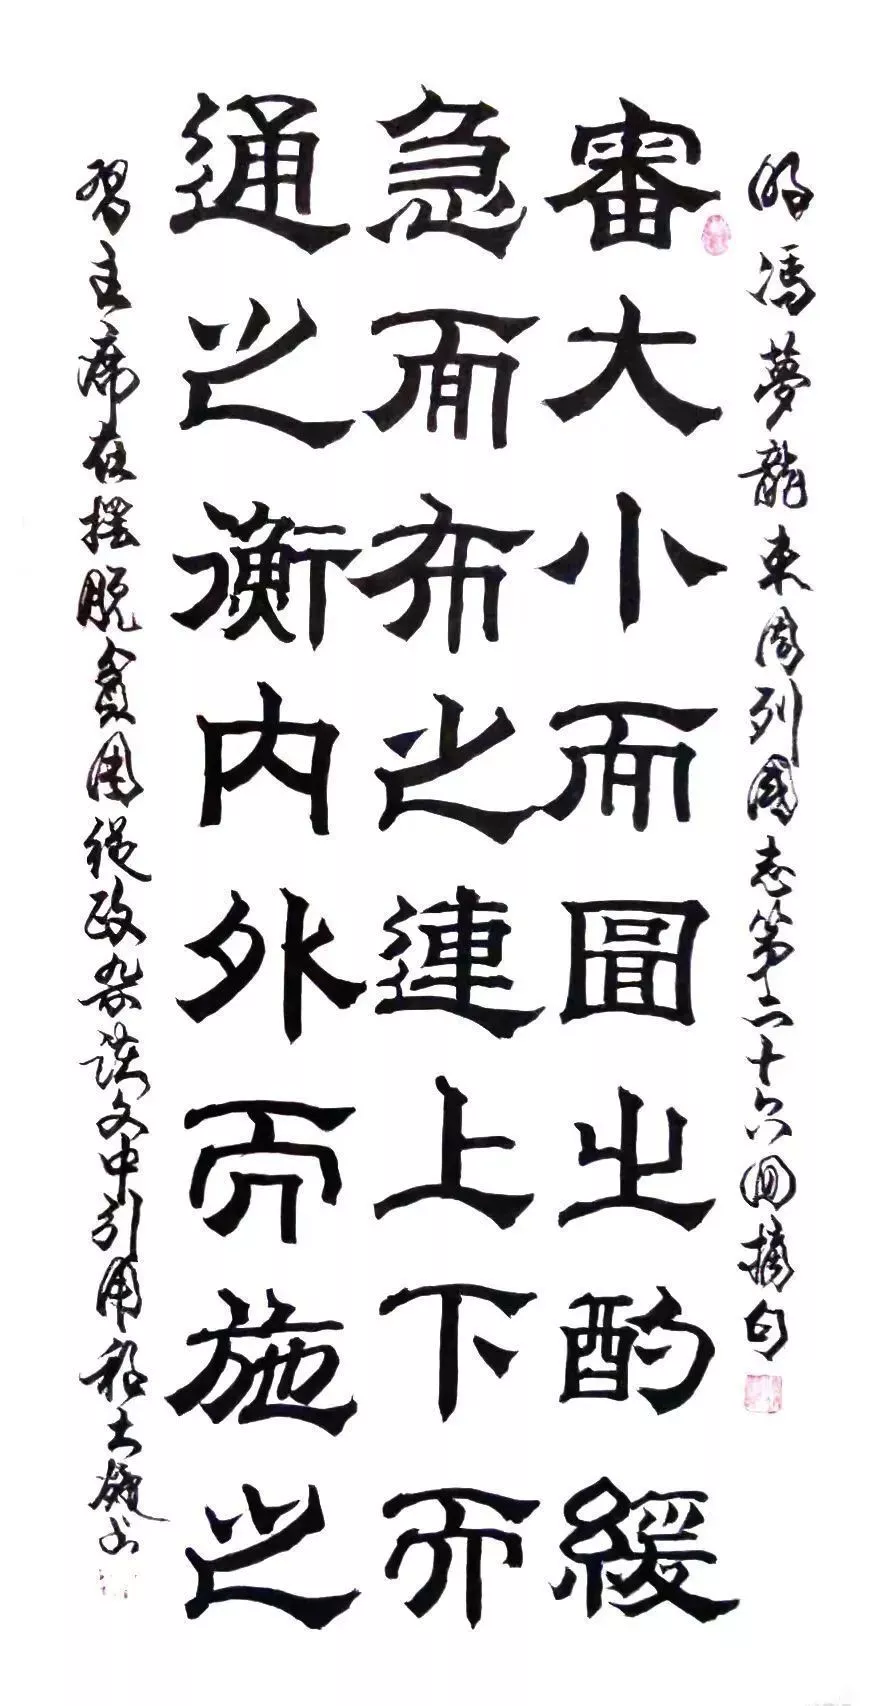 明冯夢龍東周列國志第二十六回摘句
審大小而圖之酌緩
急而布之連上下而
通之衡内外而施之
習主席在摆脱貧困從政杂談文中引用